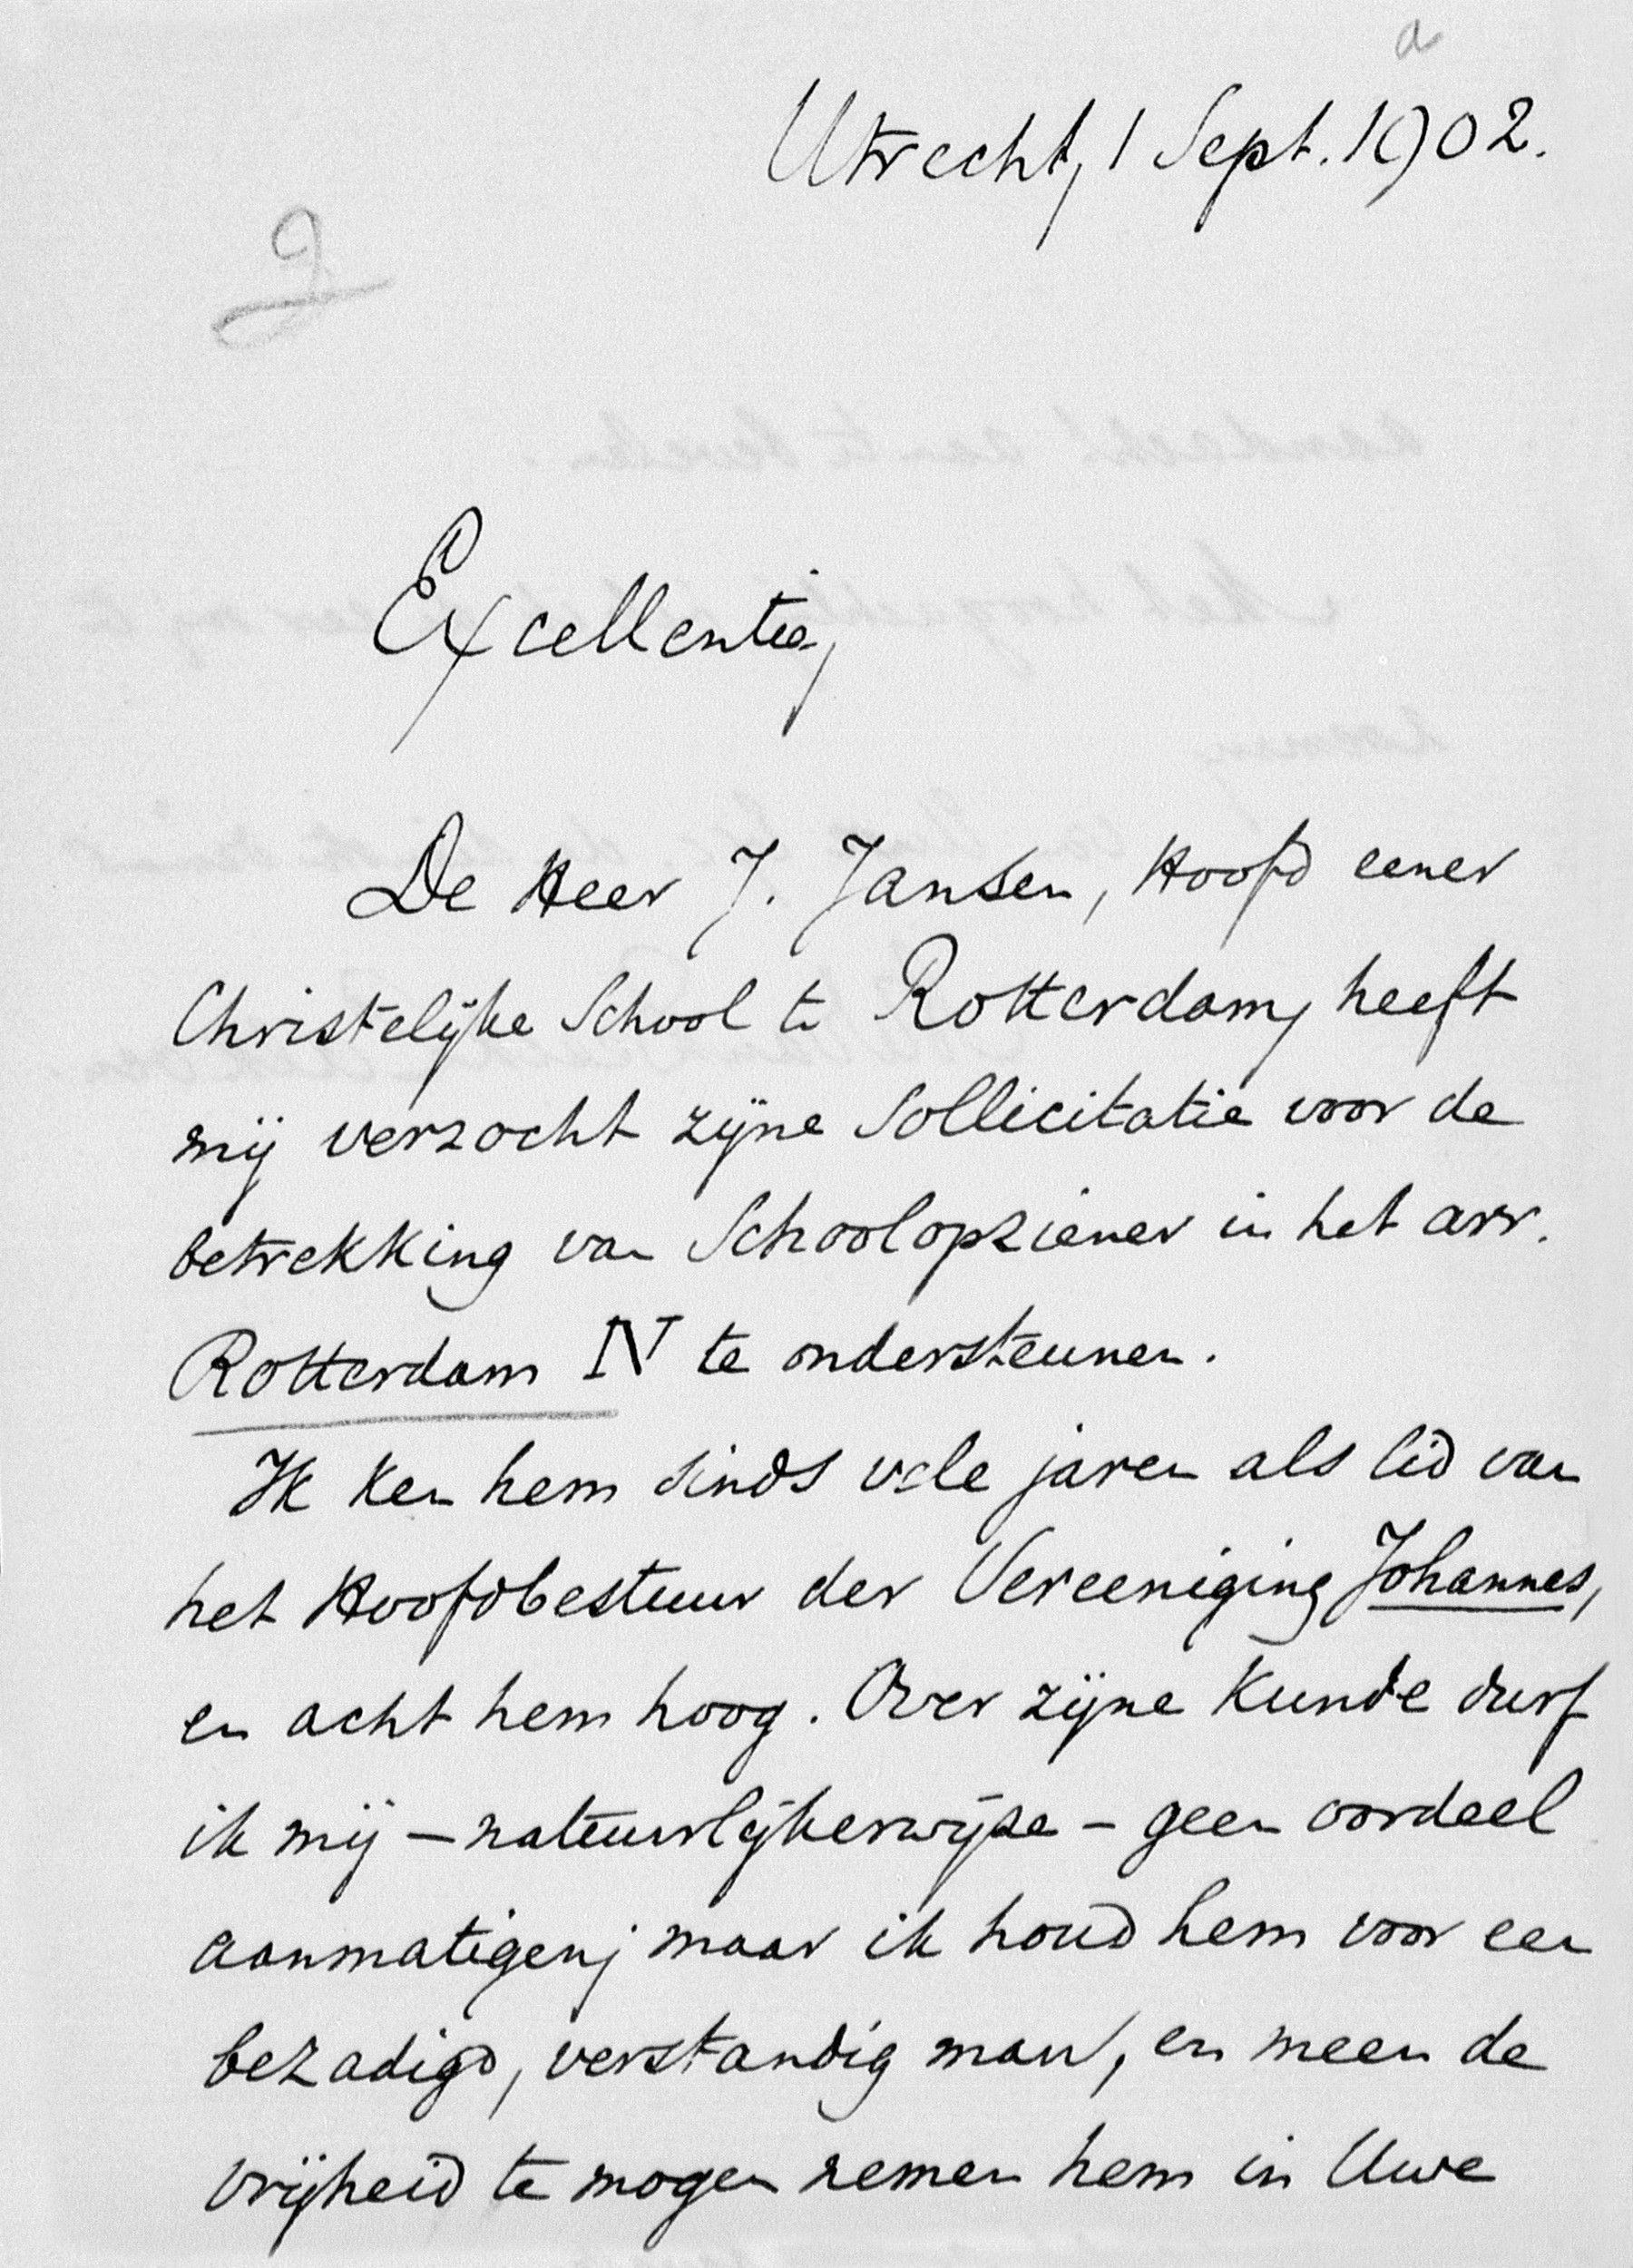 a
Utrecht, 1 Sept. 1902.
Excellentie,
De Heer J. Jansen, Hoofd eener
Christelijke School te Rotterdam, heeft
mij verzocht zijne sollicitatie voor de
betrekking van Schoolopziener in het arr.
Rotterdam IV te ondersteunen.
Ik ken hem sinds vele jaren als lid van
het Hoofdbestuur der Vereeniging Johannes,
en acht hem hoog. Over zijne kunde durf
ik mij – natuurlijkerwijze – geen oordeel
aanmatigen; maar ik houd hem voor een
bezadigd, verstandig man, en meen de
vrijheid te mogen nemen hem in Uwe